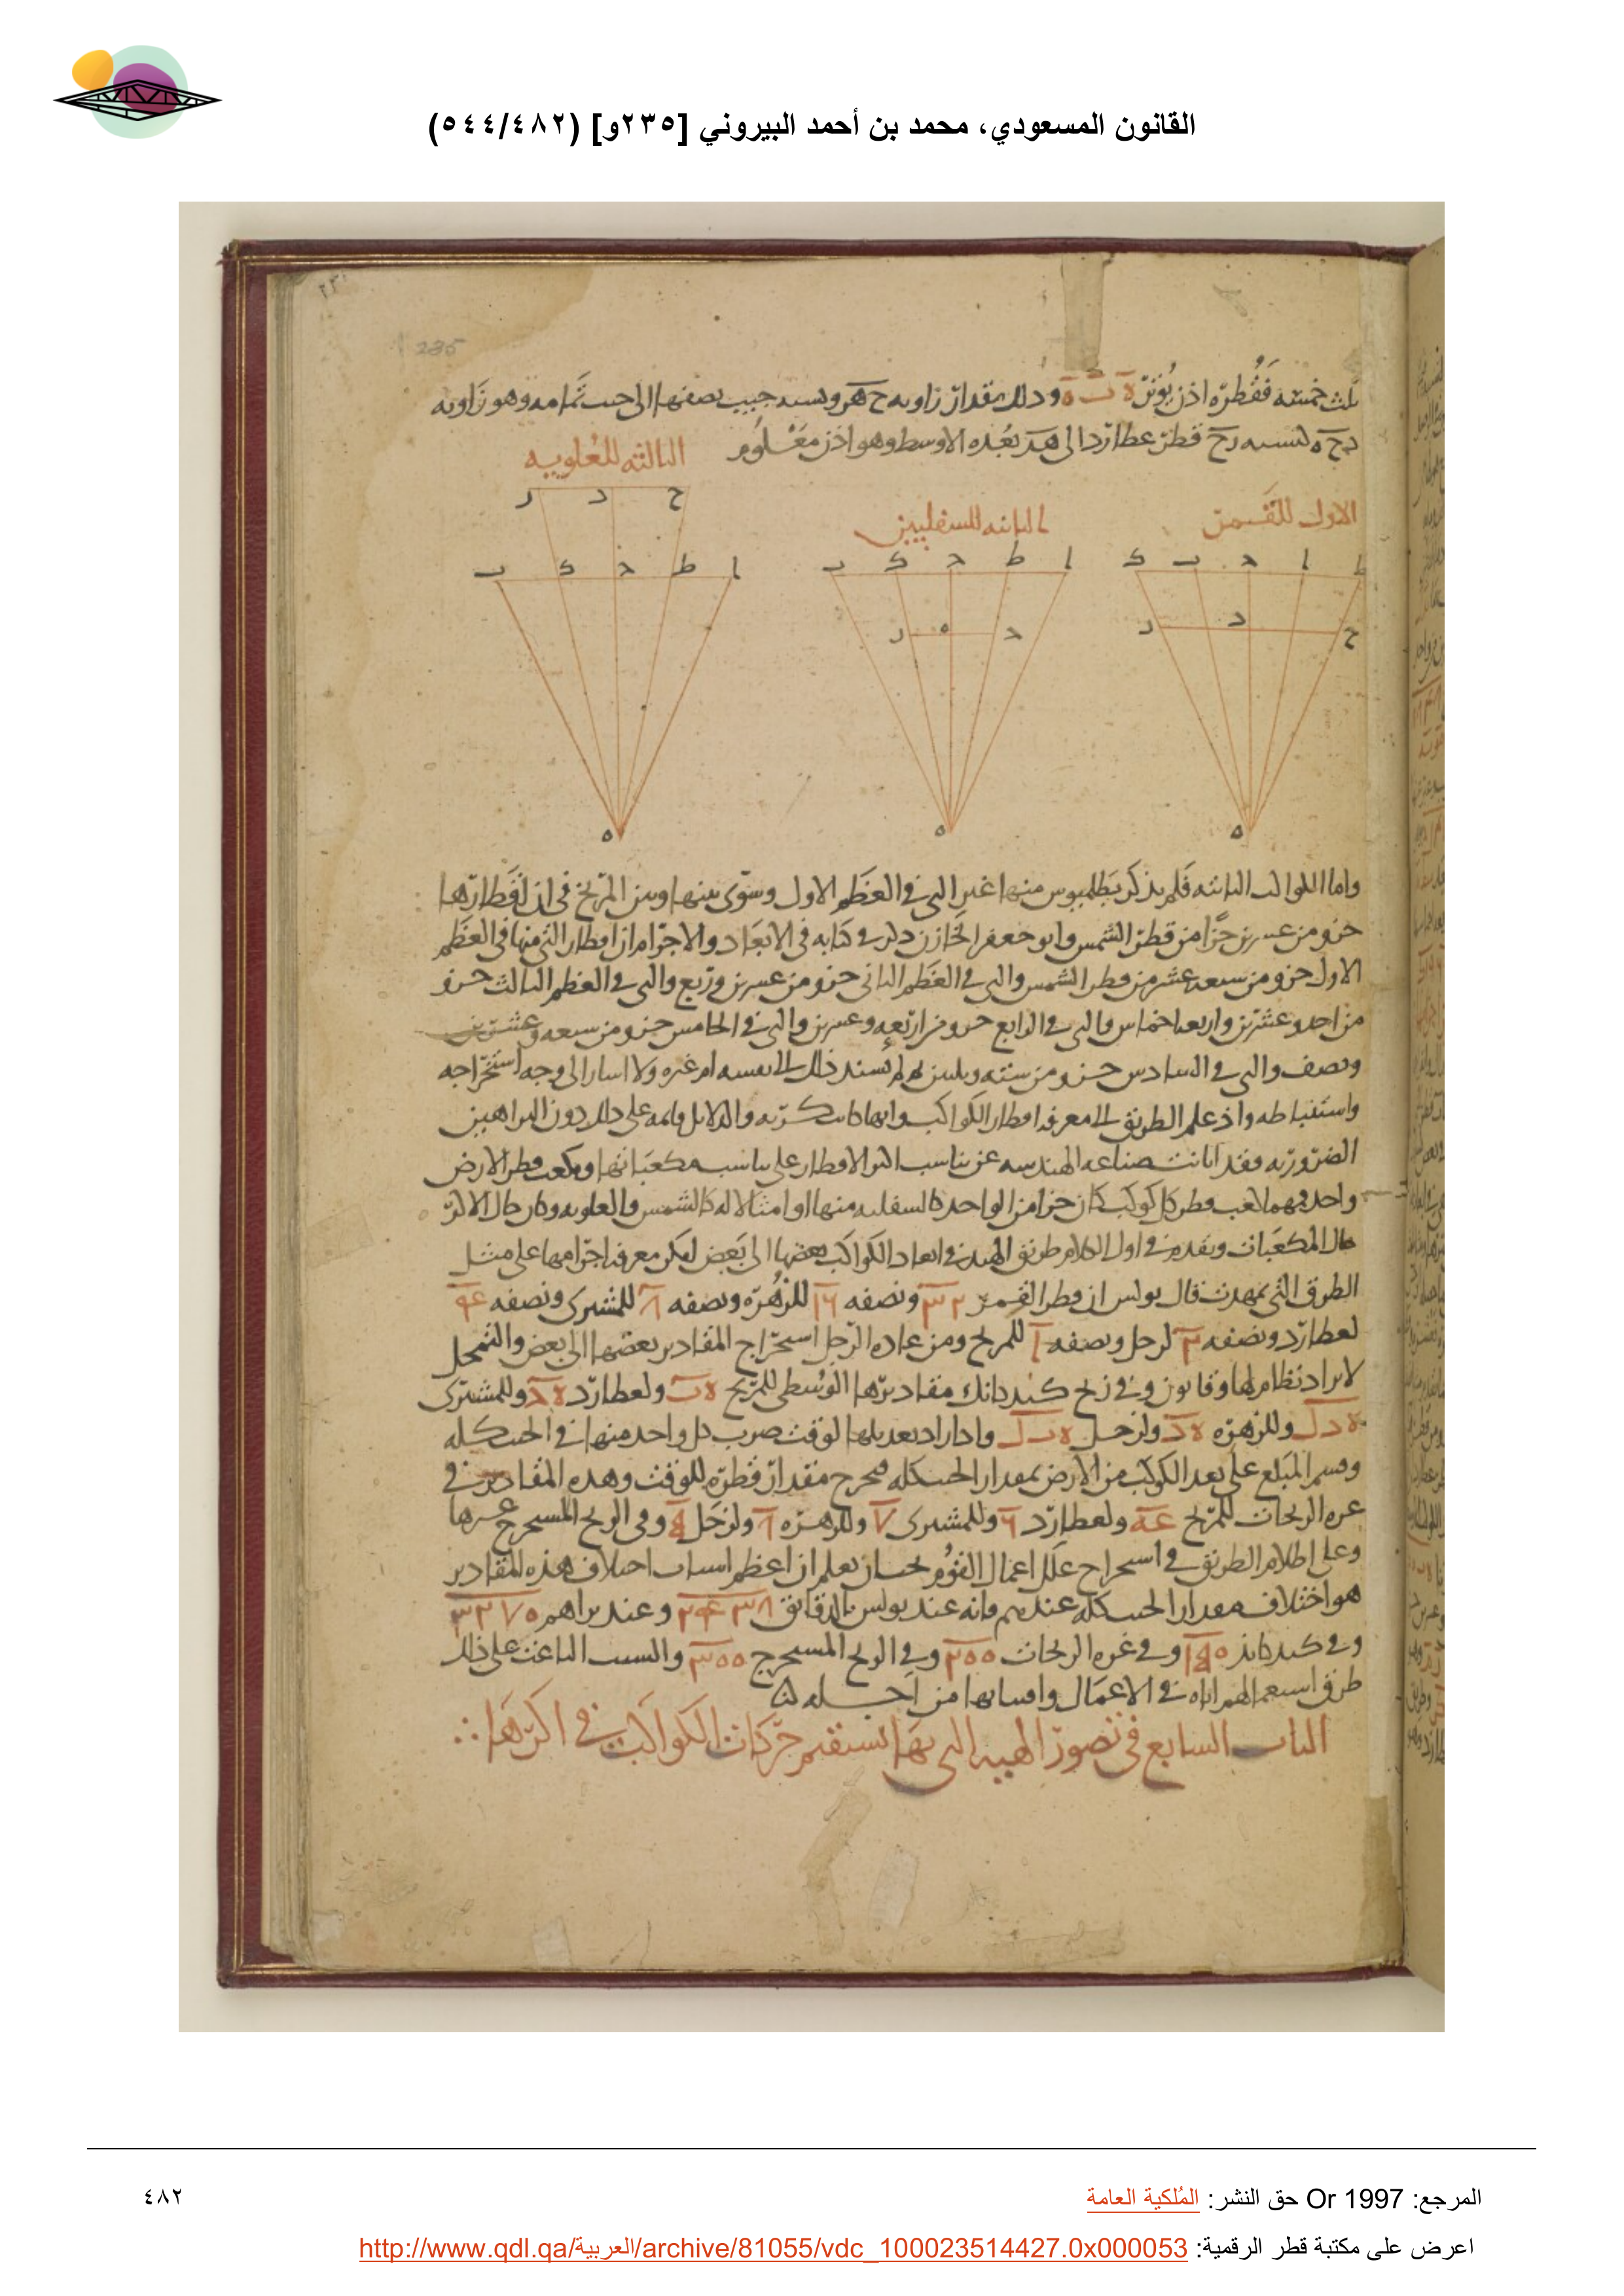 القانون المسعودي، محمد بن أحمد البيروني [٢٣٥و] (٥٤٤/٤٨٢)
235
ثلث خمسه فقطره اذن يوتر ودلك مقدار زاويه ح ه ر ونسبه جيب نصفها الى جيب تمامه وهو زاويه
د ح ه كنسبه د ح قطر عطارد الى ه د بعده الاوسط وهو اذن معلوم
الثالثه للعلويه
الاول للقمر
الثانيه للسفليين
ح د ر
ا ط ج ك ب
ا ط ج ك ب
ط ا ج ب ك
واما الكواكب الثابته فلم يذكر بطلميوس منها غير التي في العظم الاول وسوى بينها وبين المريخ في ان اقطارها
جزو من عسرين جزا من قطر الشمس وابو جعفر الخازن ذكر في كتابه في الابعاد والاجرام ان اقطار التي منها في العظم
الاول جزو من سبعه عشر من قطر الشمس والتي في العظم الثاني جزو من عسرين وربع والتي في العظم الثالث جزو
من احد وعشرين واربعه اخماس والتي في الرابع جزو من اربعه وعسرين والتي في الخامس جزو من سبعه وعشرين
ونصف والتي في السادس جزو من سته وثلثين ولم يسند ذلك الى نفسه ام غيره ولا اسار الى وجه استخراجه
واستنباطه واذ علم الطريق الى معرفه اقطار الكواكب وانها كانت كريه والدلايل قايمه على ذلك دون البراهين
الضروريه فقد ابانت صناعه الهندسه عن تناسب اكر الاقطار على تناسب مكعباتها ومكعب قطر الارض
واحد فمهما كعب قطر كل كوكب كان جزا من الواحد كالسفليه منها او امثالا له كالشمس والعلويه وكان حال الاكر
حال المكعبات وبتقدم في اول الكلام طريق الهند في ابعاد الكواكب بعضها الى بعض ليكن معرفه اجرامها على مثل
الطرق التي تمهدت قال بولس ان قطر القمر ٣٢ ونصفه ١٦ للزهره ونصفه ٨ للمشترى ونصفه ٤
لعطارد ونصفه ٢ لزحل ونصفه ١ للمريخ ومن عاده الرجل استخراج المقادير بعضها الى بعض والتمحل
لايراد نظام لها وقانون وفي زيج كندكاتك مقاديرها الوسطى للمريخ ه ب ولعطارد ه ج وللمشترى
وللزهره ه د ولزحل واذا اراد تعديلها للوقت ضرب كل واحد منها في الحبب كله
وقسم المبلغ على بعد الكوكب من الارض بمقدار الجيب كله فيخرج مقدار قطره للوقت وهذه المقادير في
غره الزيجات للمريخ ولعطارد ٦ وللمشترى ٧ وللزهره ولزحل وفي الزيح المسحرج غيرها
وعلى اطلاع الطريق في استحراج علل اعمال القوم يحسان يعلم ان اعظم اسباب اختلاف هذه المقادير
هو اختلاف مقدار الجيب كله عندهم فانه عند بولس بالدقايق ٣٤٣٨ وعند براهم ٣٢٧٠
وفي كندكاتك ١٥٠ وفي غره الزيجات ٢٠٠ وفي الزيح المستحرج ٣٠٠ والسبب الباعث على ذلك
طرق استعمالهم اياه في الاعمال وافسامها من اجله
الباب السابع في تصور الهييه التي بها تستقيم حركات الكواكب في اكرها
٤٨٢
المرجع: Or 1997 حق النشر: المُلكية العامة
اعرض على مكتبة قطر الرقمية: http://www.qdl.qa/العربية/archive/81055/vdc_100023514427.0x000053